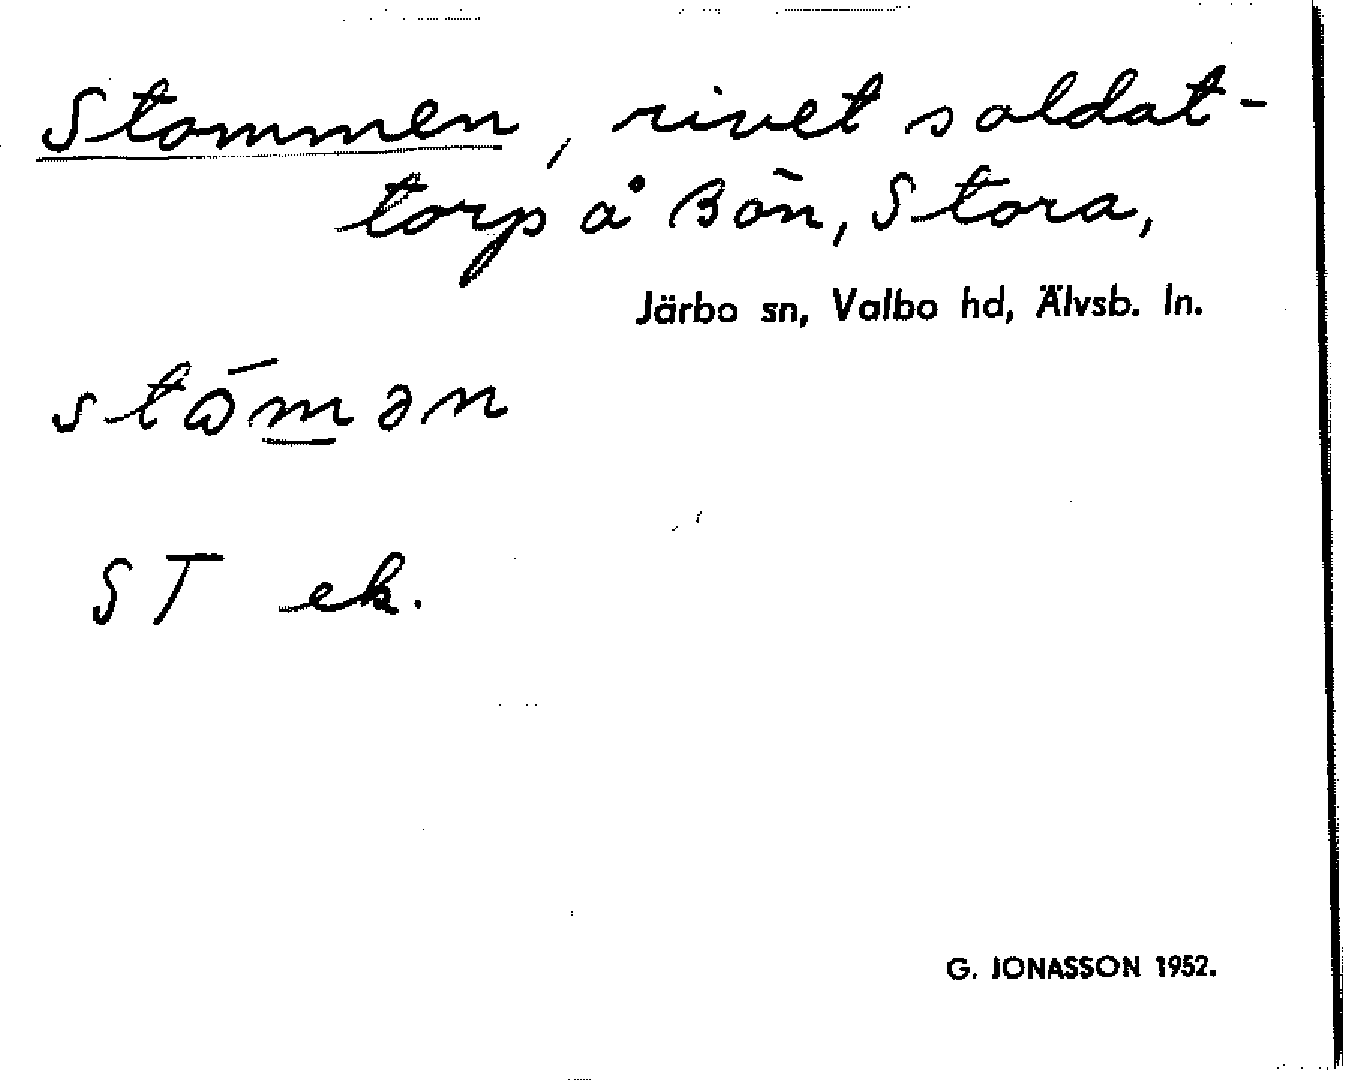 Stommen, rivet soldat-
torp å Bön, Stora,
Järbo sn, Valbo hd, Älvsb. ln.
stòmən
ST ek.
G. JONASSON 1952.